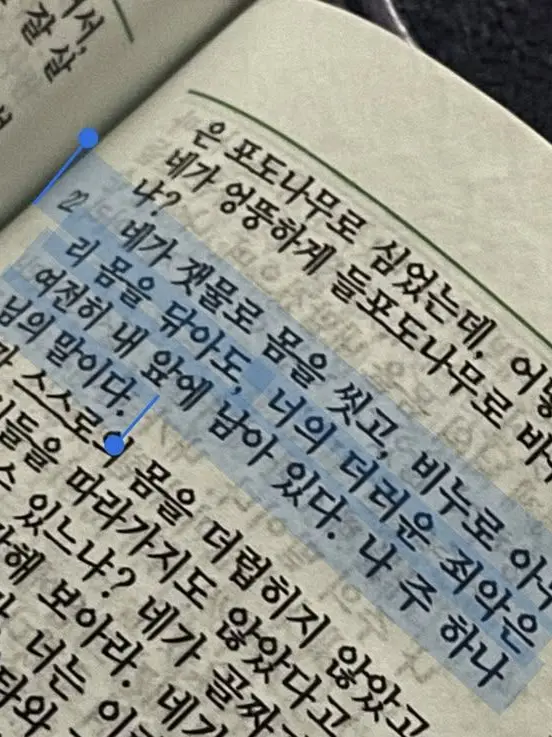 서,
잘 살
은 포도나무로 심었는데, 어
네가 엉뚱하게 들포도나무로
냐?
22 네가 잿물로 몸을 씻고, 비누로
리 몸을 닦아도, 너의 더러운 죄악은
여전히 내 앞에 남아 있다. 나 주 하나
님의 말이다.
스스로의 몸을 더럽히지 않았고
들을 따라가지도 않았다고
있느냐? 네가 골짜
해 보아라. 네가
너는